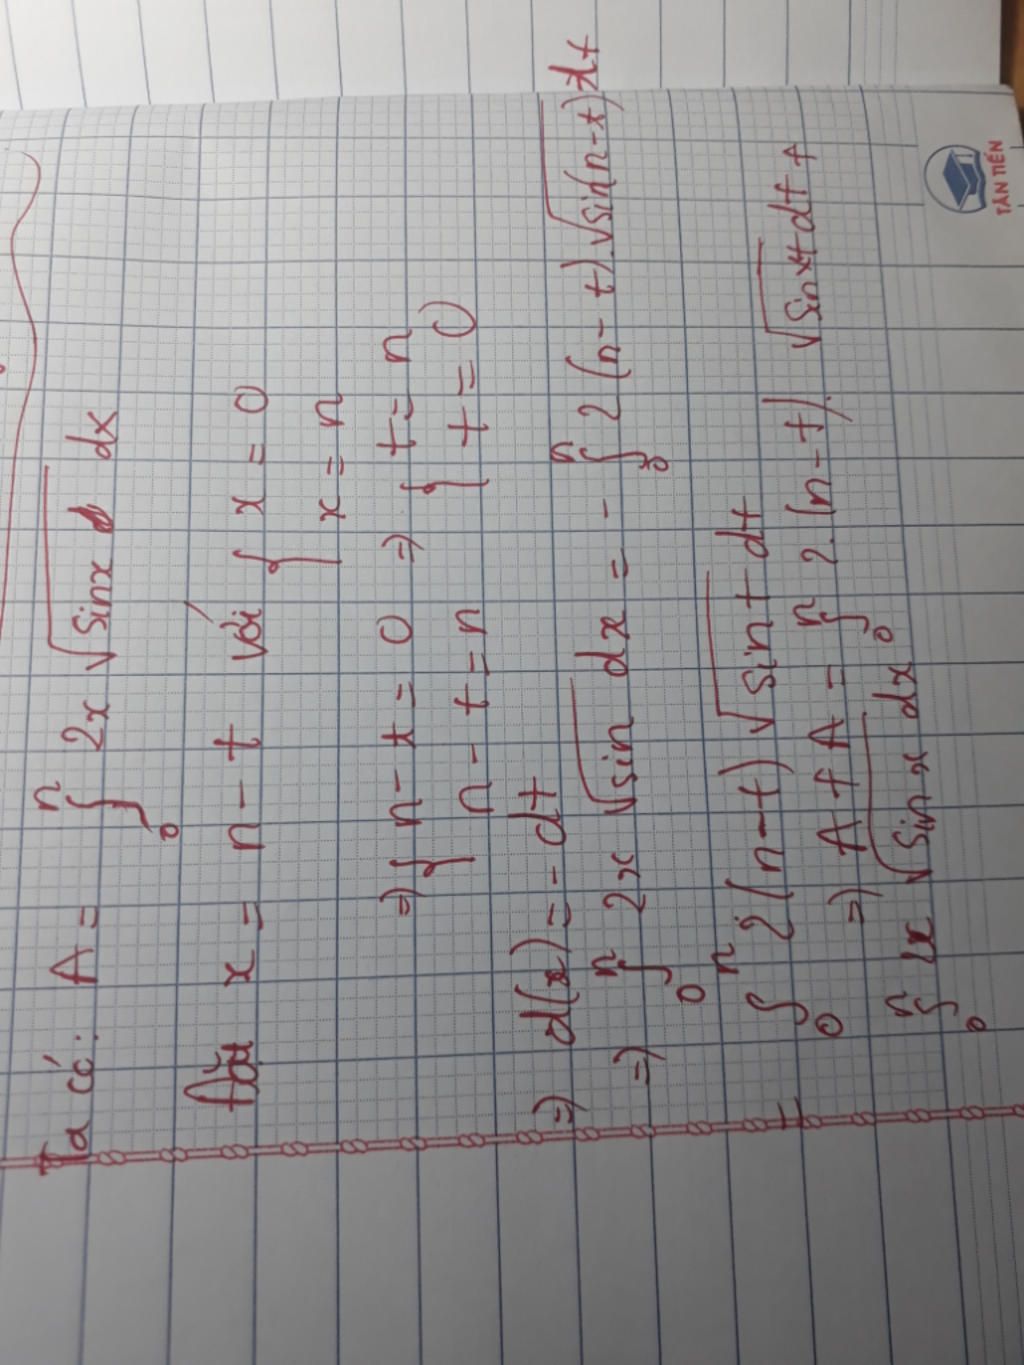 Ta có: A = ∫₀ⁿ 2x √sinx dx
Đặt x = n - t với { x = 0
x = n
=> { n - t = 0 => { t = n
n - t = n t = 0
=> d(x) = - dt
=> ∫₀ⁿ 2x √sin dx = - ∫₀ⁿ 2(n - t).√sin(n-t) dt
= ∫₀ⁿ 2(n-t) √sin t dt
=> A + A = ∫₀ⁿ 2.(n-t). √sinxt dt +
∫₀ⁿ 2x √sinx dx
TÂN TIẾN